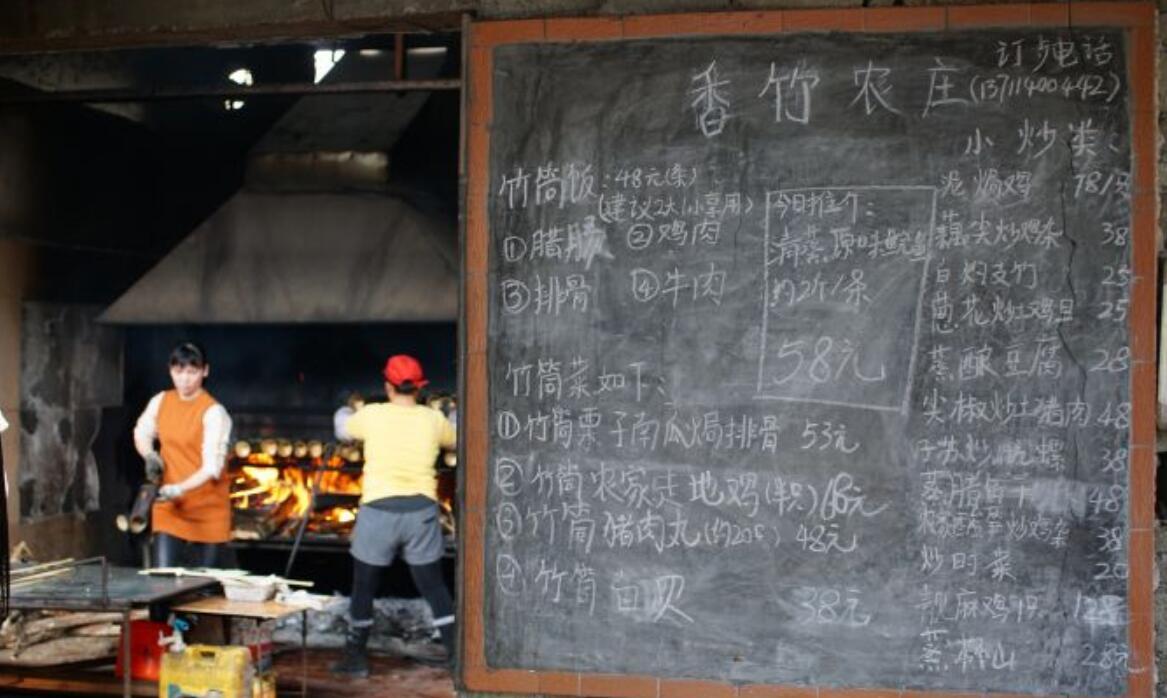 番竹农庄
订台电话
(13711400442)
小炒类:
竹筒饭:48元(条)
(建议2大1小享用)
①腊肠 ②鸡肉
③排骨 ④牛肉
今日推介:
清蒸原味鲩鱼
约2斤/条
58元
竹筒菜如下:
①竹筒栗子南瓜焗排骨 53元
②竹筒农家走地鸡(半只)
③竹筒猪肉丸 48元
④竹筒白贝 38元
泥焗鸡 78/只
藕尖炒鸡杂 38
白灼支竹 25
葱花炒土鸡旦 25
蒸酿豆腐 28
尖椒炒土猪肉 48
38
48
炒鸡杂 38
炒时菜 20
蒸 28元